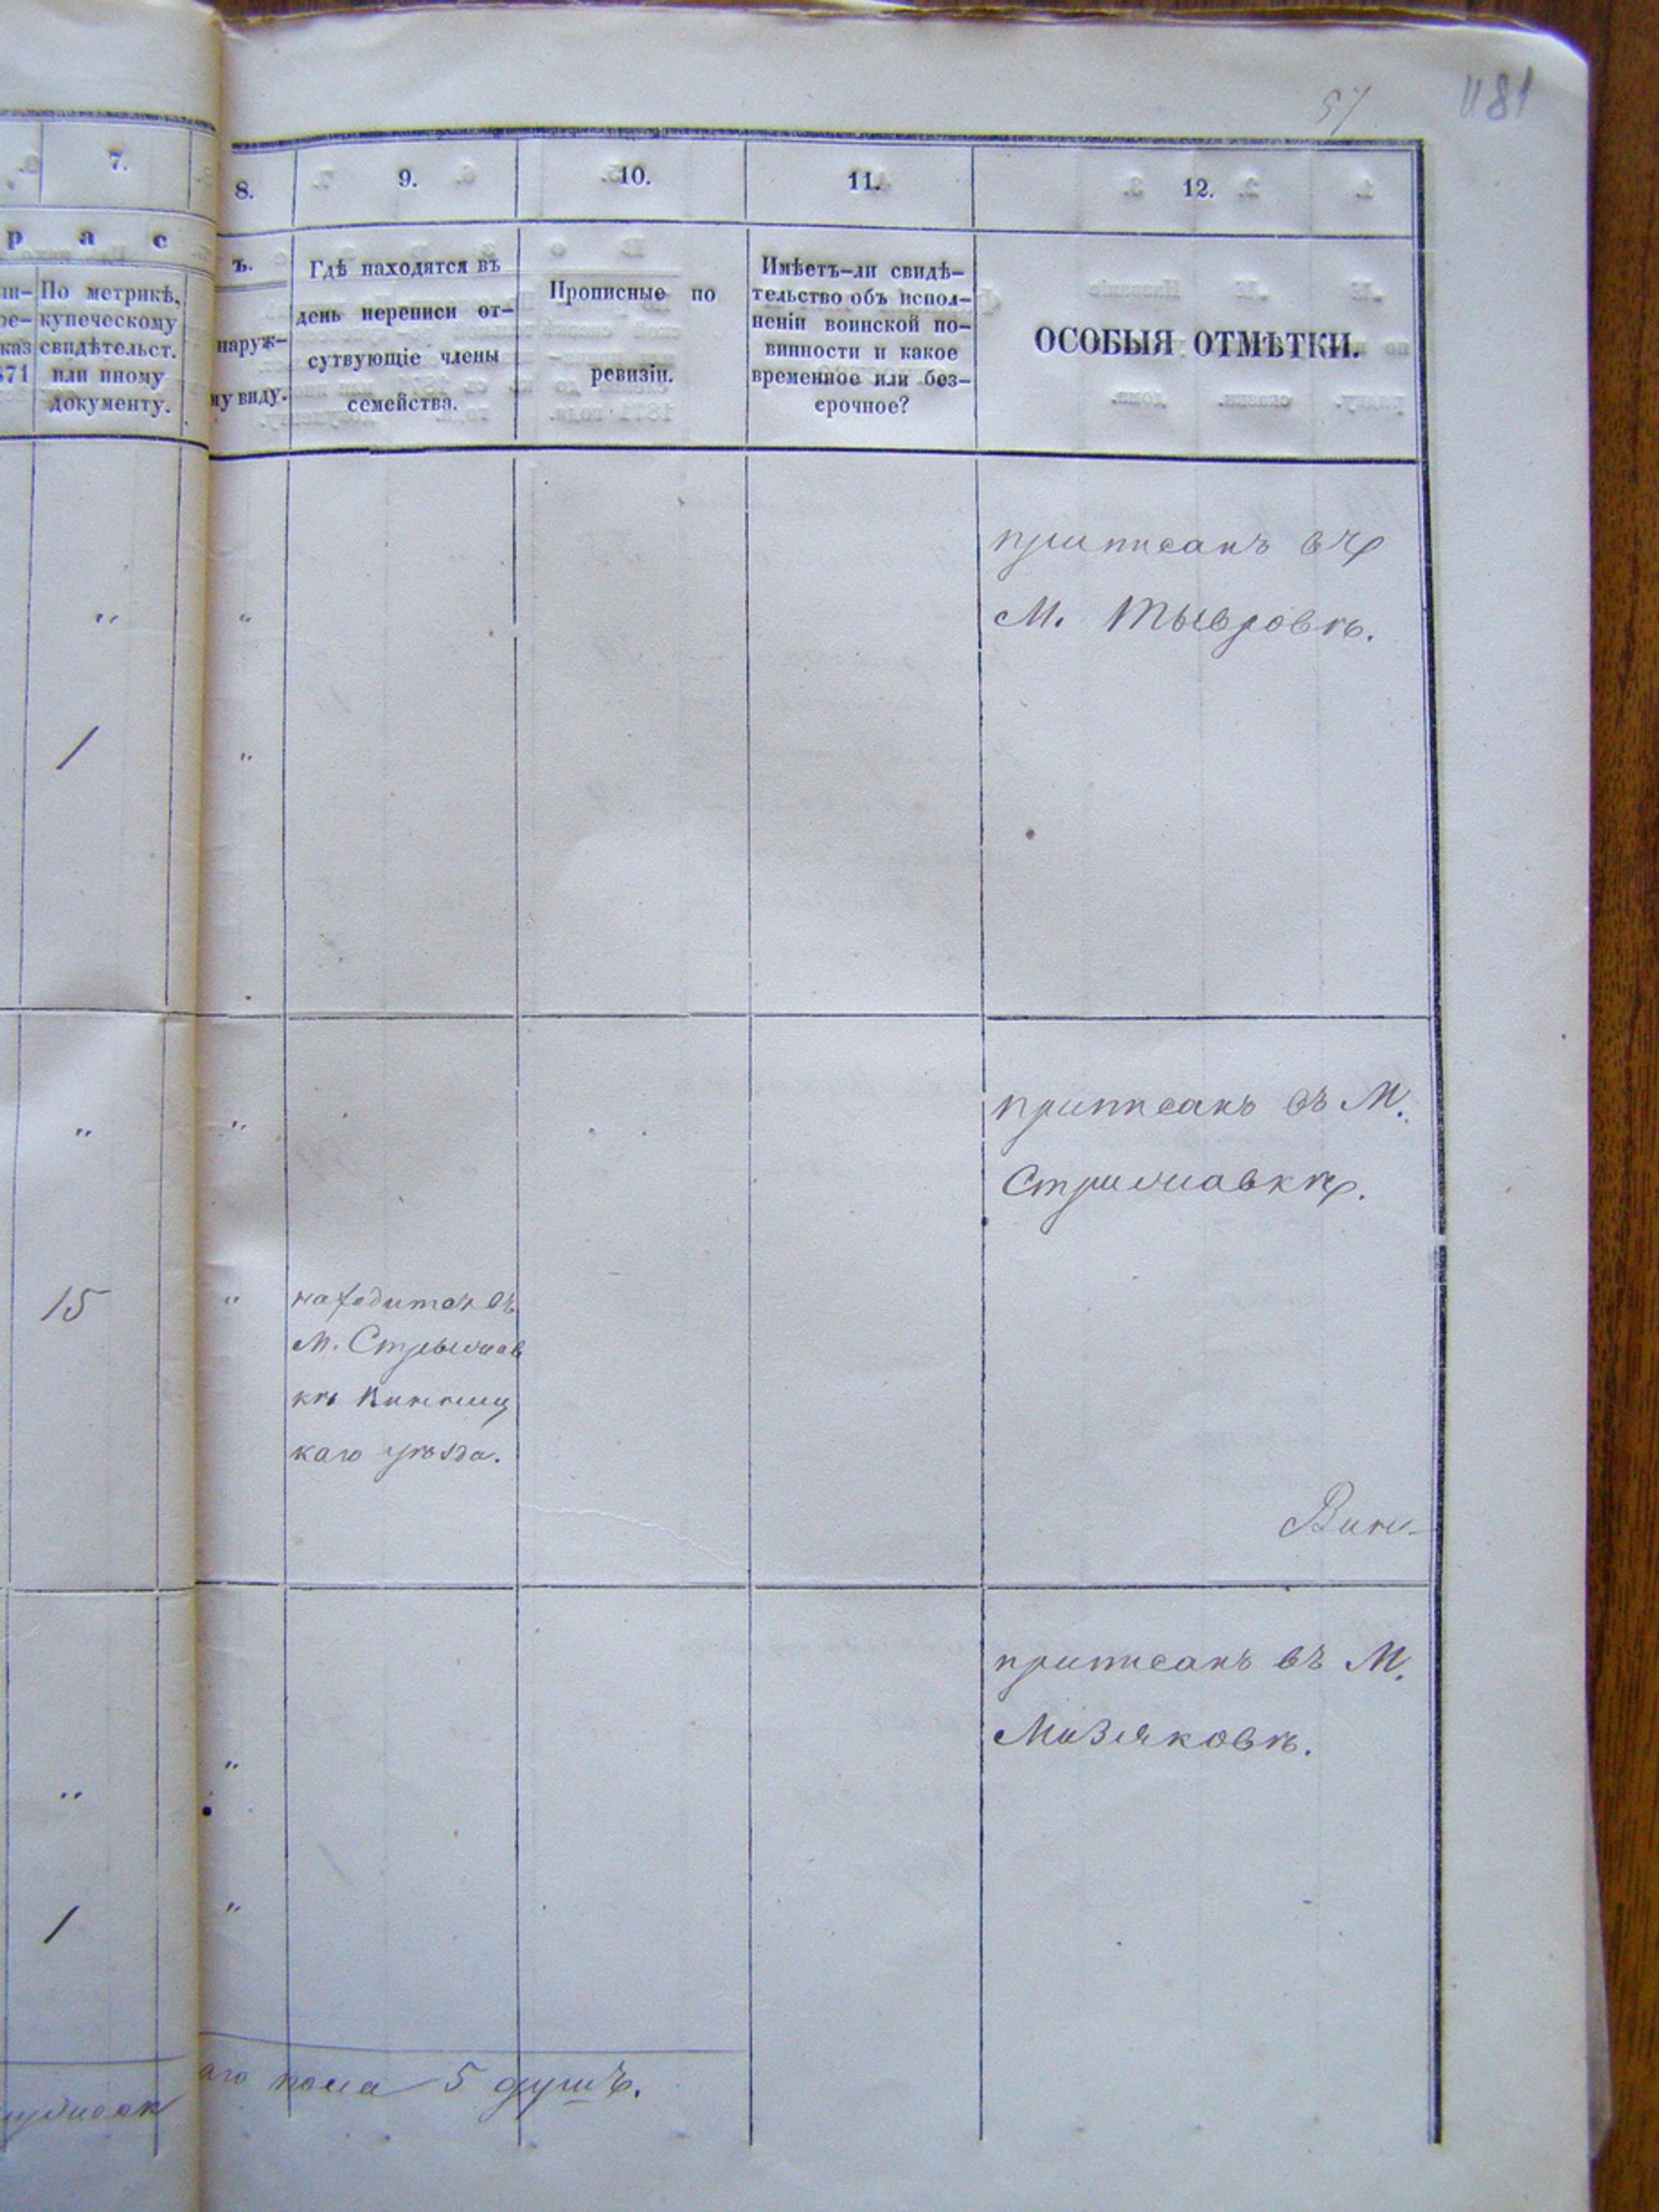 57 1181
7. 8. 9. 10. 11. 12.
р а с ъ.
По метрикѣ,
купеческому
свидѣтельст.
или иному
документу.
наруж-
му виду.
Гдѣ находятся въ
день переписи от-
сутвующіе члены
семейства.
Прописные по
ревизіи.
Имѣетъ-ли свидѣ-
тельство объ испол-
неніи воинской по-
винности и какое
временное или без-
срочное?
ОСОБЫЯ ОТМѢТКИ.
приписанъ въ
М. Тывровѣ.
" "
1 "
приписанъ въ М.
Стрижавкѣ.
" "
15 "
находится въ
М. Стрыжав
кѣ Винниц
каго уѣзда.
Вин-
приписанъ въ М.
Мизяковѣ.
" "
1 "
аго пола 5 душъ.